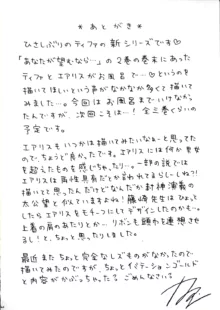 ＊あとがき＊
ひさしぶりのティファの新シリーズです♡
「あなたが望むなら…」の2巻の巻末にあった
ティファとエアリスがお風呂で…♡というのを
描いてほしいという声がなかなか多くて描いて
みました…。今回はお風呂までいけなかっ
たんですが、次回こそは…！全三巻くらいの
予定です。
エアリスをいつかは描いてみたいなぁ…と思ってた
ので、ちょうど良かったです。エアリスには何か男女
を超えたものを感じちゃったり…。一部の説では
エアリスは両性具有だとか言われてるらしーしね?!
太公望と
の太公望とも似ていますよね!藤崎先生はひょっと
したらエアリスをモチーフにしてデザインしたのかも…。
上着の肩のあたりとか…。リボンも髄を連想させ
るし!と、ちょっと思ったりしました。
最近またちょっと完全なレズものがなかったので
描いてみたのですが、ちょっとイミテーションゴールド
と内容がかぶっちゃた。ごめんなさい。